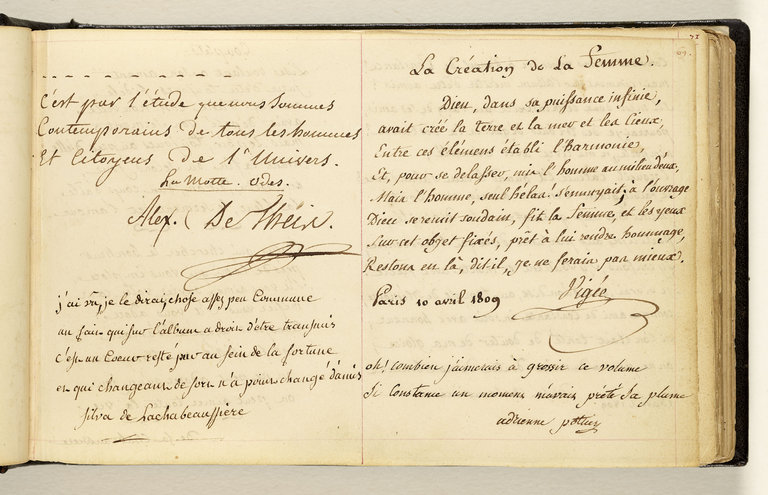 C'est par l'étude que nous sommes
Contemporains de tous les hommes
Et Citoyens de l'Univers.
La Motte. Odes.
Alex.
j'ai vu, je le dirai, chose assez peu Commune
un fait qui sur l'album a droit d'être transmis
c'est un Coeur resté pur au sein de la fortune
et qui changeant de sort n'a point changé d'amis
de Lachabeaussière
71
La Création de La Femme.
Dieu, dans sa puissance infinie,
avait créé la terre et la mer et les Cieux,
Entre ces élémens établi l'Harmonie,
Et, pour se délasser, mis l'homme au milieu d'eux,
Mais l'homme, seul hélas! s'ennuyait; à l'ouvrage
Dieu se remit soudain, fit la femme, et les yeux
Sur cet objet fixés, prêt à lui rendre hommage,
Restons en là, dit-il, je ne ferais pas mieux.
Paris 10 avril 1809
Vigée
oh! combien j'aimerais à grossir ce volume
Si Constance un moment m'avait prêté sa plume
adrienne